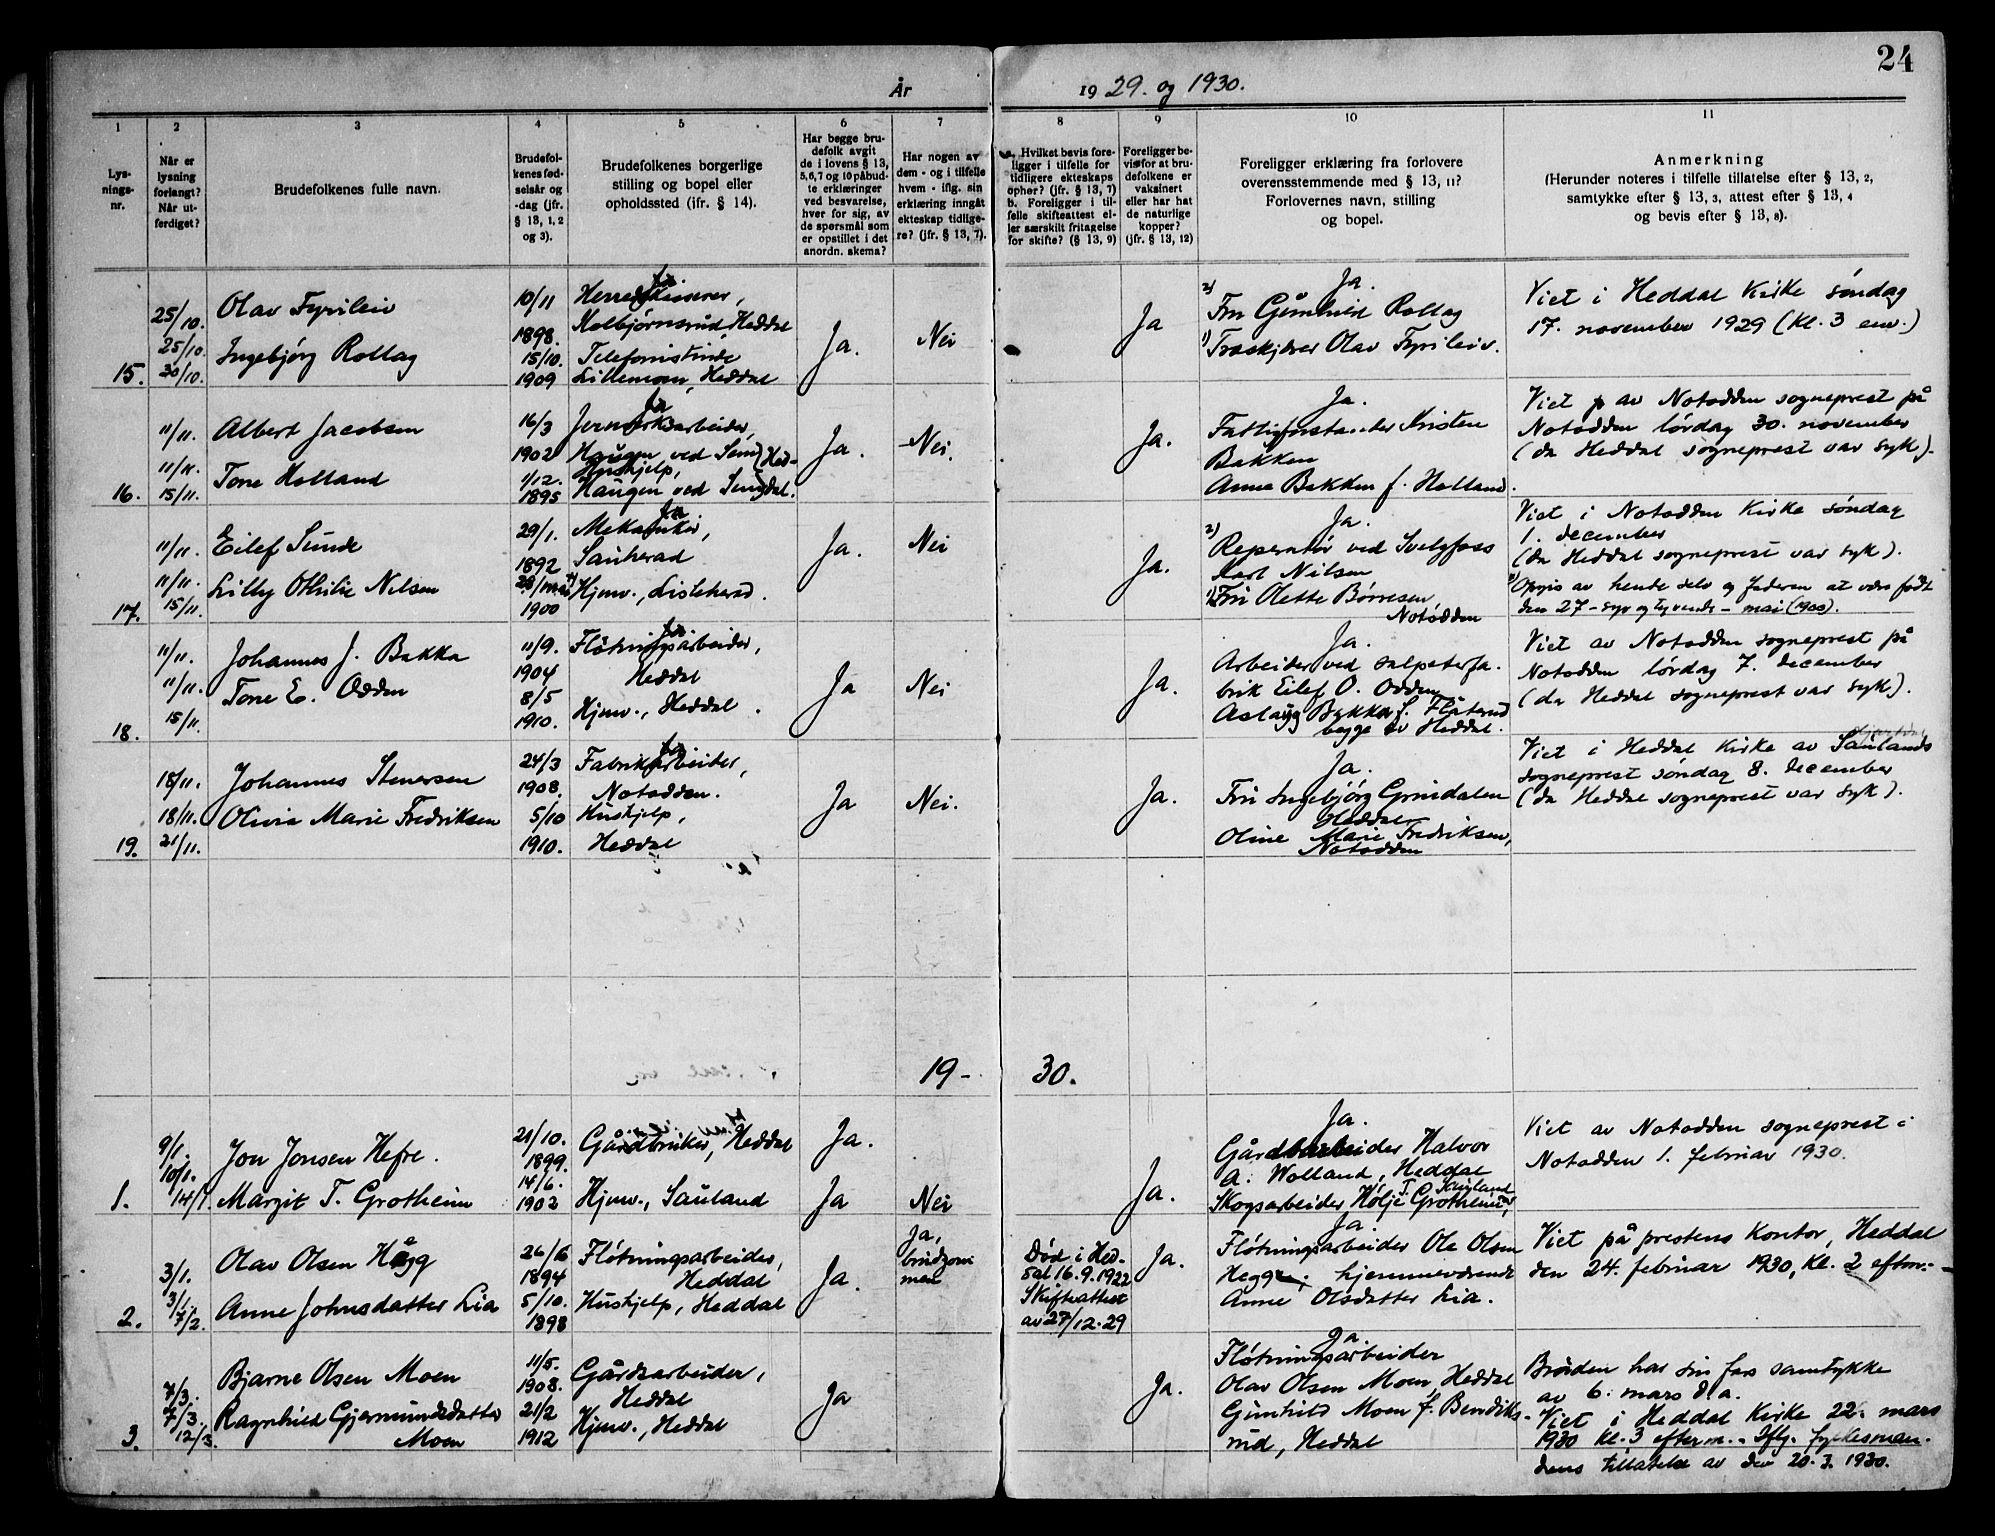 24
År
1929. og 1930.
1
2
3
4
5
6
7
8
9
10
11
Lysningsnr.
Når er lysning forlangt? Når utferdiget?
Brudefolkenes fulle navn.
Brudefolkenes fødselsår og -dag (jfr. § 13, 1, 2 og 3).
Brudefolkenes borgerlige stilling og bopel eller opholdssted (jfr. § 14).
Har begge brudefolk avgit de i lovens § 13, 5, 6, 7 og 10 påbudte erklæringer ved besvarelse, hver for sig, av de spørsmål som er opstillet i det anordn. skema?
Har nogen av dem - og i tilfelle hvem - iflg. sin erklæring inngåt ekteskap tidligere? (jfr. § 13, 7).
a. Hvilket bevis foreligger i tilfelle for tidligere ekteskaps ophør? (jfr. § 13, 7) b. Foreligger i tilfelle skifteattest eller særskilt fritagelse for skifte? (§ 13, 9)
Foreligger bevis for at brudefolkene er vaksinert eller har hat de naturlige kopper? (jfr. § 13, 12)
Foreligger erklæring fra forlovere overensstemmende med § 13, 11? Forlovernes navn, stilling og bopel.
Anmerkning
(Herunder noteres i tilfelle tillatelse efter § 13, 2, samtykke efter § 13, 3, attest efter § 13, 4 og bevis efter § 13, 8).
15.
25/10.
25/10.
30/10.
Olav Fyrileiv
Ingebjørg Rollag
10/11
1898.
15/10.
1909
Ja
Herredskasserer,
Kolbjørnsrud, Heddal
Telefonistinde
Lillemoen, Heddal
Ja.
Nei
Ja
Ja.
2) Fru Gunhild Rollag
1) Olav Fyrileiv.
Viet i Heddal Kirke søndag
17. november 1929 (Kl. 3 em.)
16.
11/11.
11/11.
15/11.
Albert Jacobsen
Tone Holland
16/3
1902
1/12.
1895
Ja
Jernverksarbeider,
Haugen ved Sem (Hed-
Hushjelp,
Haugen ved Sem dal.
Ja.
Nei.
Ja.
Ja.
Fattigforstander Kristen
Bakken
Anna Bakken f. Holland.
Viet av Notodden sogneprest på
Notodden lørdag 30. november
(da Heddal sogneprest var syk).
17.
11/11.
11/11.
15/11.
Eilef Sunde
Lilly Othilie Nilsen
29/1.
1892
28/mai
1900
Ja
Mekaniker,
Sauherad
Hjmv., Lisleherad.
Ja.
Nei
Ja.
Ja.
2) Reperatør ved Svelgfoss
Karl Nilsen
1) Fru Olette Børresen
Notodden
Viet i Notodden Kirke søndag
1. december
(da Heddal sogneprest var syk).
Opgis av hende selv og faderen at være født
den 27 - syv og tyvende - mai (1900).
18.
11/11.
11/11.
15/11.
Johannes J. Bakka
Tone E. Odden
11/9.
1904
8/5
1910.
Ja
Fløtningsarbeider,
Heddal
Hjmv., Heddal.
Ja
Nei
Ja.
Ja.
Arbeider ved salpeterfa-
brik Eilef O. Odden
Aslaug Bakka f. Flåterud
begge av Heddal.
Viet av Notodden sogneprest på
Notodden lørdag 7. december
(da Heddal sogneprest var syk).
19.
18/11.
18/11.
21/11.
Johannes Stenersen
Olivia Marie Fredriksen
24/3
1908.
5/10
1910.
Ja
Fabrikarbeider,
Notodden.
Hushjelp,
Heddal
Ja
Nei.
Ja.
Ja.
Fru Ingebjørg Grindalen
Heddal
Oline Marie Fredriksen,
Notodden
Viet i Heddal Kirke av Saulands
sogneprest søndag 8. december
(da Heddal sogneprest var syk).
19 - 30.
1.
9/1.
10/1.
14/1.
Jon Jonsen Hefre.
Margit T. Grotheim
21/10.
1899.
14/6.
1902
Gårdbruker, Heddal
Hjmv., Sauland
Ja.
Ja
Nei
Ja.
Ja.
Gårdsarbeider Halvor
A. Wolland, Heddal
Skogsarbeider Hølje T. Grotheim, Sauland
Viet av Notodden sogneprest i
Notodden 1. februar 1930.
2.
3/1.
3/1.
7/2.
Olav Olsen Hägg
Anne Johnsdatter Lia
26/6
1894
5/10.
1898
Fløtningsarbeider,
Heddal
Hushjelp, Heddal
Ja.
Ja,
brudgom
men
Død i Hed-
dal 16.9.1922
Skifteattest
av 27/12.29
Ja.
Ja.
Fløtningsarbeider Ole Olsen
Hegg; hjemmeværende
Anne Olsdatter Lia.
Viet på prestens Kontor, Heddal
den 24. februar 1930, Kl. 2 efterm.-
3.
7/3.
7/3.
12/3.
Bjarne Olsen Moen
Ragnhild Gjermundsdatter
Moen
11/5.
1908.
21/2
1912
Gårdsarbeider,
Heddal
Hjmv., Heddal
Ja
Ja.
Ja.
Fløtningsarbeider
Olav Olsen Moen, Heddal
Gunhild Moen f. Bendiks-
rud, Heddal
Bruden har sin fars samtykke
av 6. mars d.a.
Viet i Heddal Kirke 22. mars
1930 kl. 3 efterm. - Iflg. fylkesman-
dens tillatelse av den 20.3.1930.